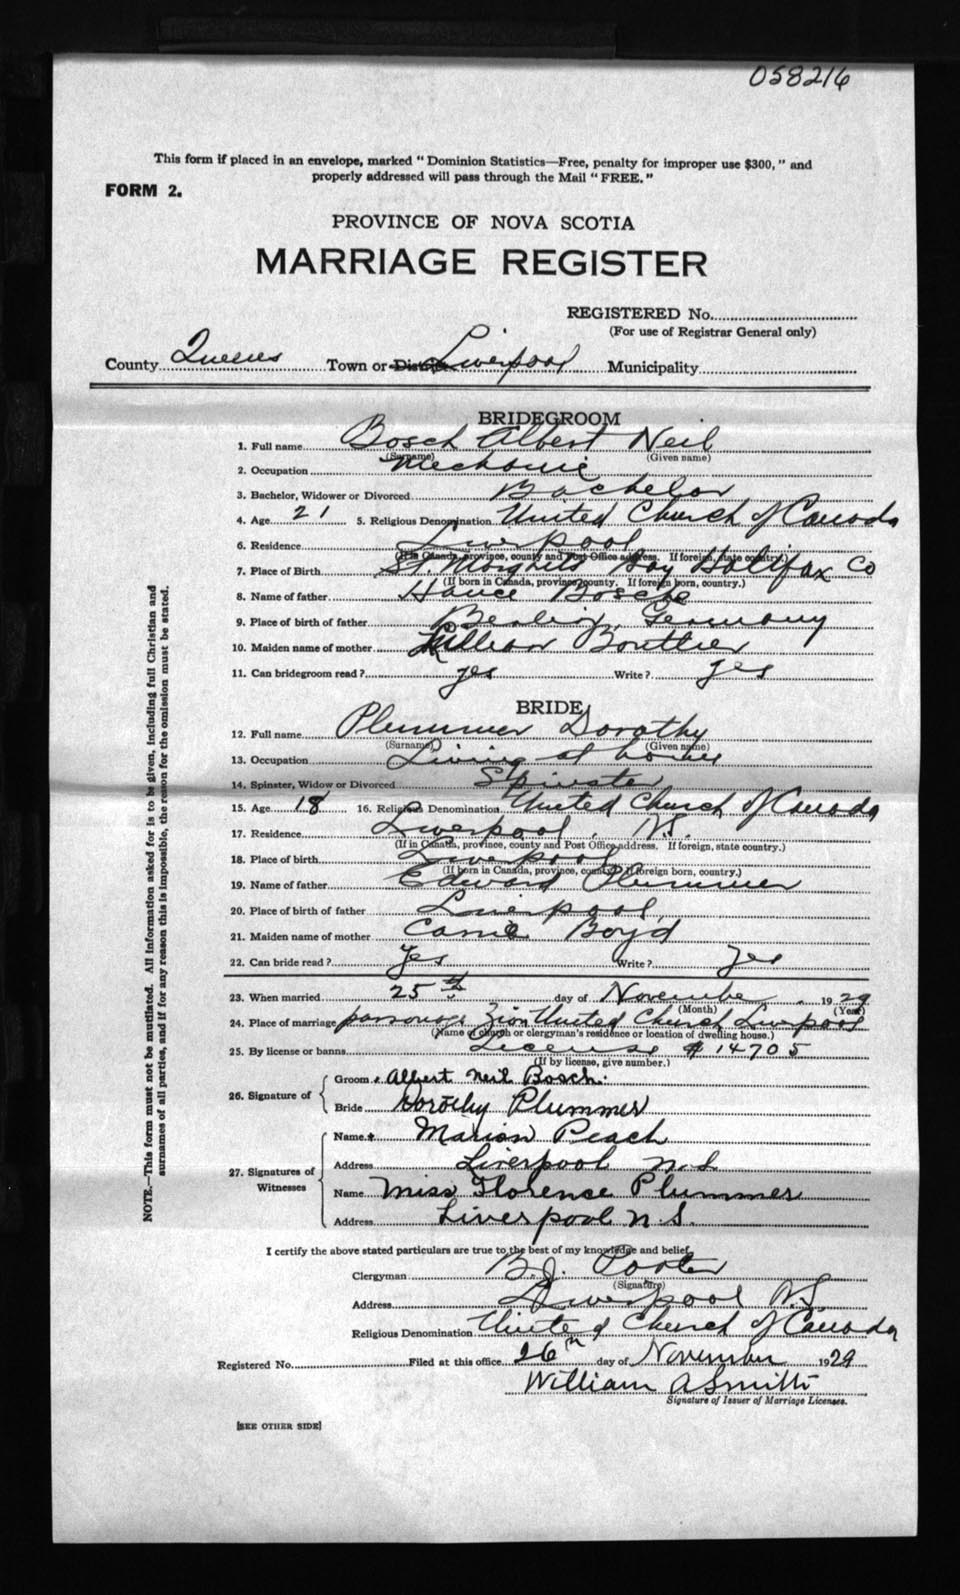 058216
This form if placed in an envelope, marked "Dominion Statistics—Free, penalty for improper use $300," and
properly addressed will pass through the Mail "FREE."
FORM 2.
PROVINCE OF NOVA SCOTIA
MARRIAGE REGISTER
REGISTERED No.
(For use of Registrar General only)
County Queens Town or District Liverpool Municipality
BRIDEGROOM
1. Full name Bosch Albert Neil
(Surname) (Given name)
2. Occupation Mechanic
3. Bachelor, Widower or Divorced Bachelor
4. Age 21 5. Religious Denomination United Church of Canada
6. Residence Liverpool
(If in Canada, province, county and Post Office address. If foreign, state country.)
7. Place of Birth St Margrets Bay Halifax Co
(If born in Canada, province, county. If foreign born, country.)
8. Name of father Hance Bosche
9. Place of birth of father Berlin, Germany
10. Maiden name of mother Lillian Boutlier
11. Can bridegroom read? yes Write? yes
BRIDE
12. Full name Plummer Dorothy
(Surname) (Given name)
13. Occupation Living at home
14. Spinster, Widow or Divorced Spinster
15. Age 18 16. Religious Denomination United Church of Canada
17. Residence Liverpool, N.S.
(If in Canada, province, county and Post Office address. If foreign, state country.)
18. Place of birth Liverpool
(If born in Canada, province, county. If foreign born, country.)
19. Name of father Edward Plummer
20. Place of birth of father Liverpool,
21. Maiden name of mother Carrie Boyd
22. Can bride read? Yes Write? Yes
23. When married 25th day of November 1929
(Month) (Year)
24. Place of marriage parsonage Zion United Church Liverpool
(Name of church or clergyman's residence or location of dwelling house.)
25. By license or banns License # 14705
(If by license, give number.)
26. Signature of
Groom Albert Neil Bosch.
Bride Dorothy Plummer
27. Signatures of Witnesses
Name Marion Peach
Address Liverpool N.S
Name Miss Florence Plummer
Address Liverpool N.S.
I certify the above stated particulars are true to the best of my knowledge and belief.
Clergyman B.J. Porter
(Signature)
Address Liverpool N.S.
Religious Denomination United Church of Canada
Registered No. Filed at this office 26th day of November 1929
William A Smith
Signature of Issuer of Marriage Licenses.
[SEE OTHER SIDE]
NOTE.—This form must not be mutilated. All information asked for is to be given, including full Christian and
surnames of all parties, and if for any reason this is impossible, the reason for the omission must be stated.